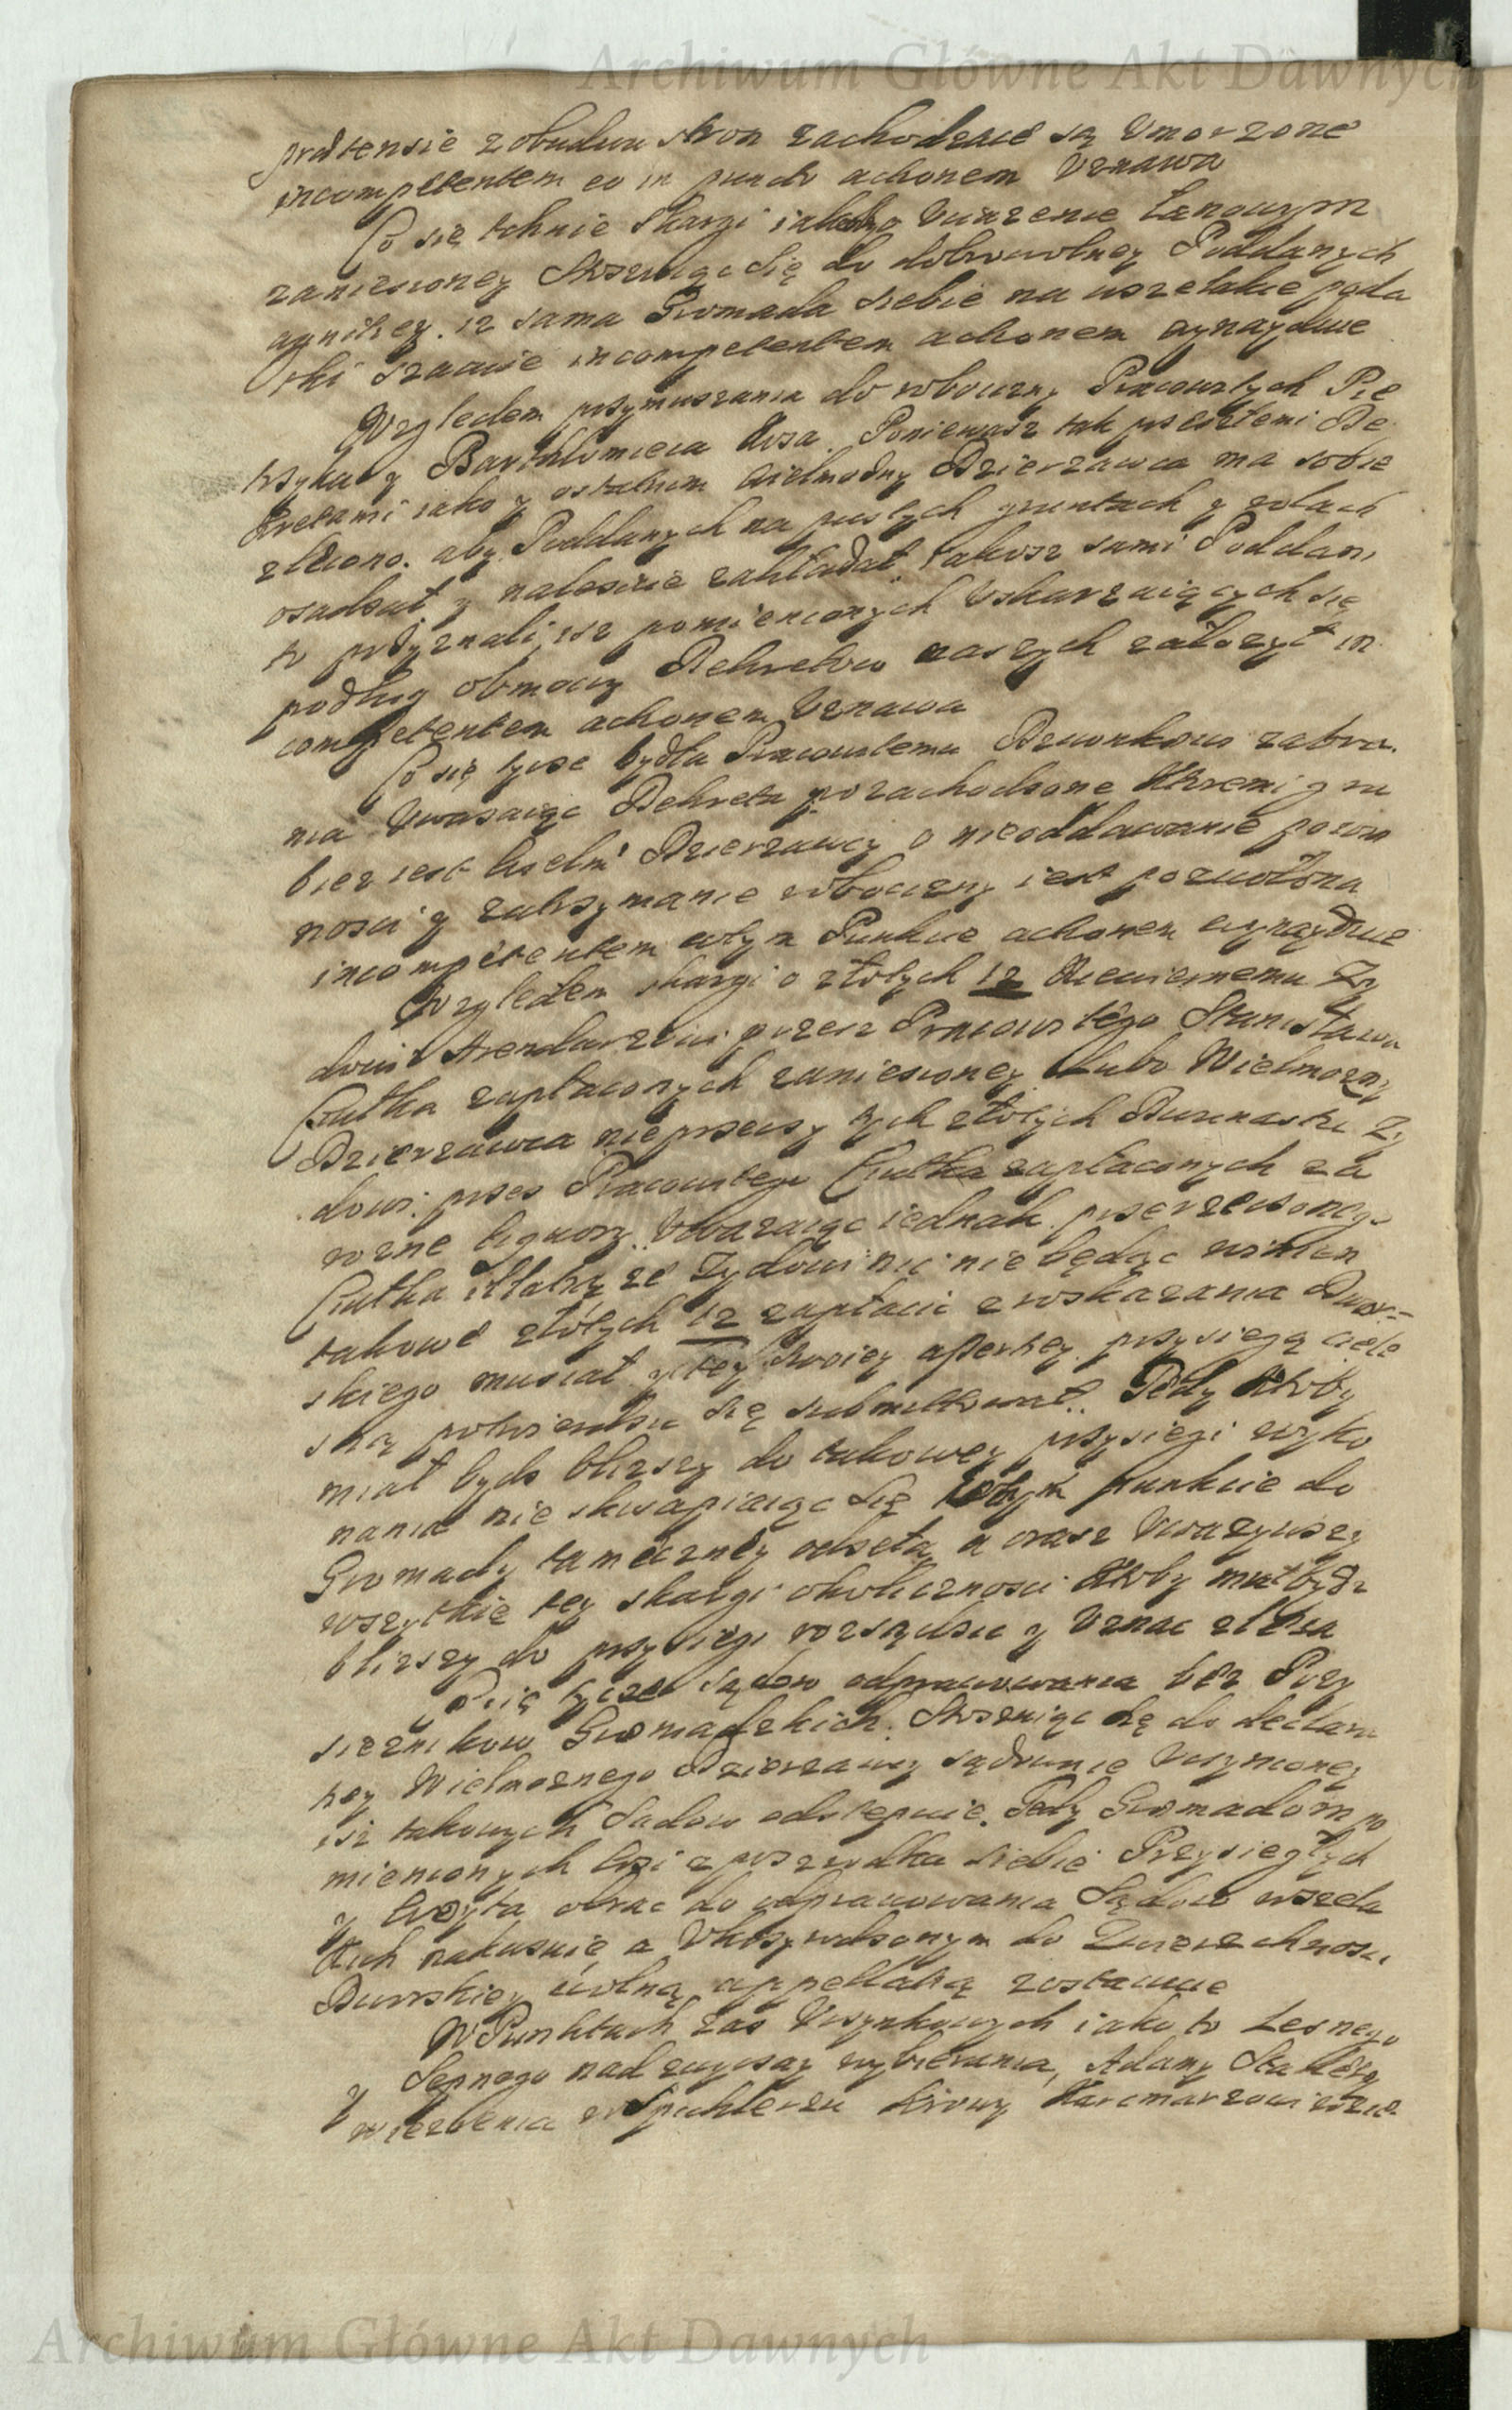 Archiwum Główne Akt Dawnych
prætensie z obudwu stron zachodzące są Umorzone
incompetentem eo in puncto actionem Uznawa
Co się tchnie Skargi iakoby Uciążenie Łanowym
zaniesioney Stosuiąc Się do dobrowolney Poddanych
agnitey. iz sama Gromada siebie na wszelakie poda
tki incompetentem actionem wynayduie
Względem przymuszania do robocizny Pracowitych Pie
trzyka y Bartłomieia Kosa. Poniewasz tak przeszłemi De
kretami iako y ostatnim Wielmożny Dzierzawca ma sobie
zlecono. aby Poddanych na pustych gruntach y rolach
osadzał y nalezycie zakładał. Jakosz sami Poddani
to przyznali, isz pomienionych Uskarzaiących się
podług obmowy Dekretow naszych załozył in
competentem actionem Uznawa
Co się tycze bydła Pracowitemu Dzwonkowi zabra
nia Uwazaiąc Dekreta pozachodzone Ktremi gra
biez iest Wielm Dzierzawcy o nieoddawanie powin
nosci y zatrzymanie robocizny iest pozwolona
incompetentem wtym Punkcie actionem wynayduie
Względem skargi o złotych 12 Niewiernemu Zy
dowi Arendarzowi przez Pracowitego Stanisława
Ciułka zapłaconych zaniesioney. Lubo Wielmozny
Dzierzawca nieprzeczy tych złotych Dwunastu Zy
dowi. przez Pracowitego Ciułka zapłaconych za
rozne liquory. Uwazaiąc iednak. przerzeczonego
Ciułka ze Zydowi nic nie będąc winien
takowe złotych 12 zapłacić z roskazania Dwor=
skiego musiał y tey swoiey assertey przysięgą ciele
sną potwierdzic się submittował. Tedy Ktoby
miał bydz blizszy do takowey przysiegi wyko
nania nie skwapiaiąc Się wtym punkcie do
Gromady tameczney odseła, a oraz Uwazywszy
wszytkie tey skargi okolicznosci Ktoby miał bydz
blizszy do przysięgi rozsądzic y Uznac zleca
Co się tycze sądow odprawowania bez Przy
sieznikow Gromadzkich. Stosuiąc Się do declara
tey Wielmoznego Dzierzawcy sądownie Uczynioney
isz takowych Sadow odstępuie. Tedy Gromadom po
mienionych wsi z poszrodka siebie Przysięgłych
y Woyta obrac do odprawowania Sądow wszela
kich nakazuie, a Ukrzywdzonym do Zwierzchnosci
Dworskiey wolną appellatią zostawuie
W Punktach zas Uszynkowych iako to Lesnego
y Sepnego nad zwyczay wybierania, Adamy
wiezienia w Spichlerzu Krowy Karczmarzowi
Archiwum Główne Akt Dawnych